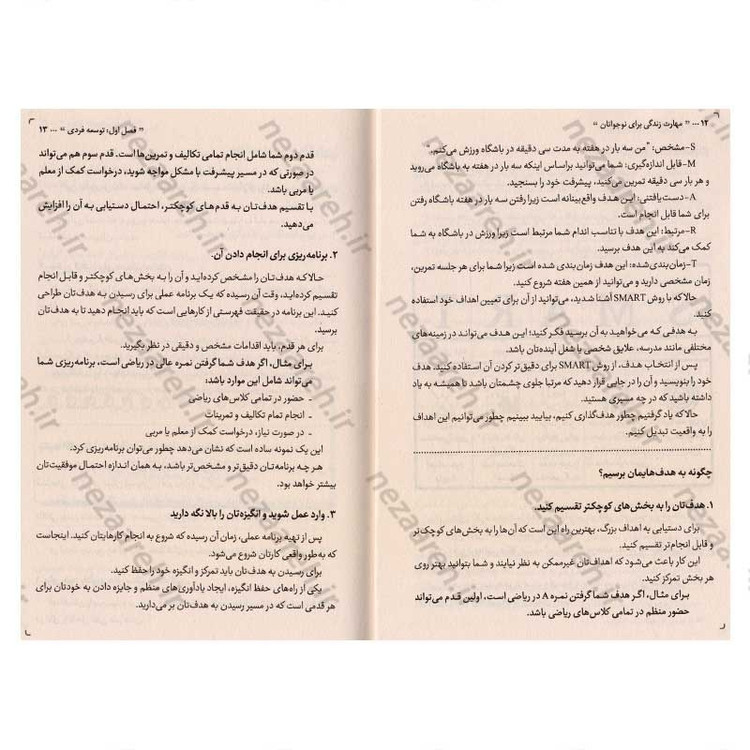 ۱۲ ... " مهارت زندگی برای نوجوانان "
S-مشخص: "من سه بار در هفته به مدت سی دقیقه در باشگاه ورزش می‌کنم."
M-قابل اندازه‌گیری: شما می‌توانید براساس اینکه سه بار در هفته به باشگاه می‌روید
و هر بار سی دقیقه تمرین می‌کنید، پیشرفت خود را بسنجید.
A-دست‌یافتنی: این هدف واقع‌بینانه است زیرا رفتن سه بار در هفته باشگاه رفتن
برای شما قابل انجام است.
R-مرتبط: این هدف با تناسب اندام شما مرتبط است زیرا ورزش در باشگاه به شما
کمک می‌کند به این هدف برسید.
T-زمان‌بندی‌شده: این هدف زمان‌بندی شده است زیرا شما برای هر جلسه تمرین،
زمان مشخصی دارید و می‌توانید از همین هفته شروع کنید.
حالا که با روش SMART آشنا شدید، می‌توانید از آن برای تعیین اهداف خود استفاده
کنید.
به هدفی که می‌خواهید به آن برسید فکر کنید؛ این هدف می‌تواند در زمینه‌های
مختلفی مانند مدرسه، علایق شخصی یا شغل آینده‌تان باشد.
پس از انتخاب هدف، از روش SMART برای دقیق‌تر کردن آن استفاده کنید. هدف
خود را بنویسید و آن را در جایی قرار دهید که مرتبا جلوی چشمتان باشد تا همیشه به یاد
داشته باشید که در چه مسیری هستید.
حالا که یاد گرفتیم چطور هدف‌گذاری کنیم، بیایید ببینیم چطور می‌توانیم این اهداف
را به واقعیت تبدیل کنیم.
چگونه به هدف‌هایمان برسیم؟
۱. هدف‌تان را به بخش‌های کوچکتر تقسیم کنید.
برای دستیابی به اهداف بزرگ، بهترین راه این است که آن‌ها را به بخش‌های کوچک‌تر
و قابل انجام‌تر تقسیم کنید.
این کار باعث می‌شود که اهداف‌تان غیرممکن به نظر نیایند و شما بتوانید بهتر روی
هر بخش تمرکز کنید.
برای مثال، اگر هدف شما گرفتن نمره A در ریاضی است، اولین قدم می‌تواند
حضور منظم در تمامی کلاس‌های ریاضی باشد.
" فصل اول: توسعه فردی " ... ۱۳
قدم دوم شما شامل انجام تمامی تکالیف و تمرین‌ها است. قدم سوم هم می‌تواند
در صورتی که در مسیر پیشرفت با مشکل مواجه شوید، درخواست کمک از معلم
یا مربی باشد.
با تقسیم هدف‌تان به قدم‌های کوچکتر، احتمال دستیابی به آن را افزایش
می‌دهید.
۲. برنامه‌ریزی برای انجام دادن آن.
حالا که هدف‌تان را مشخص کرده‌اید و آن را به بخش‌های کوچکتر و قابل انجام
تقسیم کرده‌اید، وقت آن رسیده که یک برنامه عملی برای رسیدن به هدف‌تان طراحی
کنید. این برنامه در حقیقت فهرستی از کارهایی است که باید انجام دهید تا به هدف‌تان
برسید.
برای هر قدم، باید اقدامات مشخص و دقیقی در نظر بگیرید.
برای مثال، اگر هدف شما گرفتن نمره عالی در ریاضی است، برنامه‌ریزی شما
می‌تواند شامل این موارد باشد:
- حضور در تمامی کلاس‌های ریاضی
- انجام تمام تکالیف و تمرینات
- در صورت نیاز، درخواست کمک از معلم یا مربی
این یک نمونه ساده است که نشان می‌دهد چطور می‌توان برنامه‌ریزی کرد.
هر چه برنامه‌تان دقیق‌تر و مشخص‌تر باشد، به همان اندازه احتمال موفقیت‌تان
بیشتر خواهد بود.
۳. وارد عمل شوید و انگیزه‌تان را بالا نگه دارید
پس از تهیه برنامه عملی، زمان آن رسیده که شروع به انجام کارهایتان کنید. اینجاست
که به‌طور واقعی کارتان شروع می‌شود.
برای رسیدن به هدف‌تان باید تمرکز و انگیزه خود را حفظ کنید.
یکی از راه‌های حفظ انگیزه، ایجاد یادآوری‌های منظم و جایزه دادن به خودتان برای
هر قدمی است که در مسیر رسیدن به هدف‌تان بر می‌دارید.
nezaareh.ir